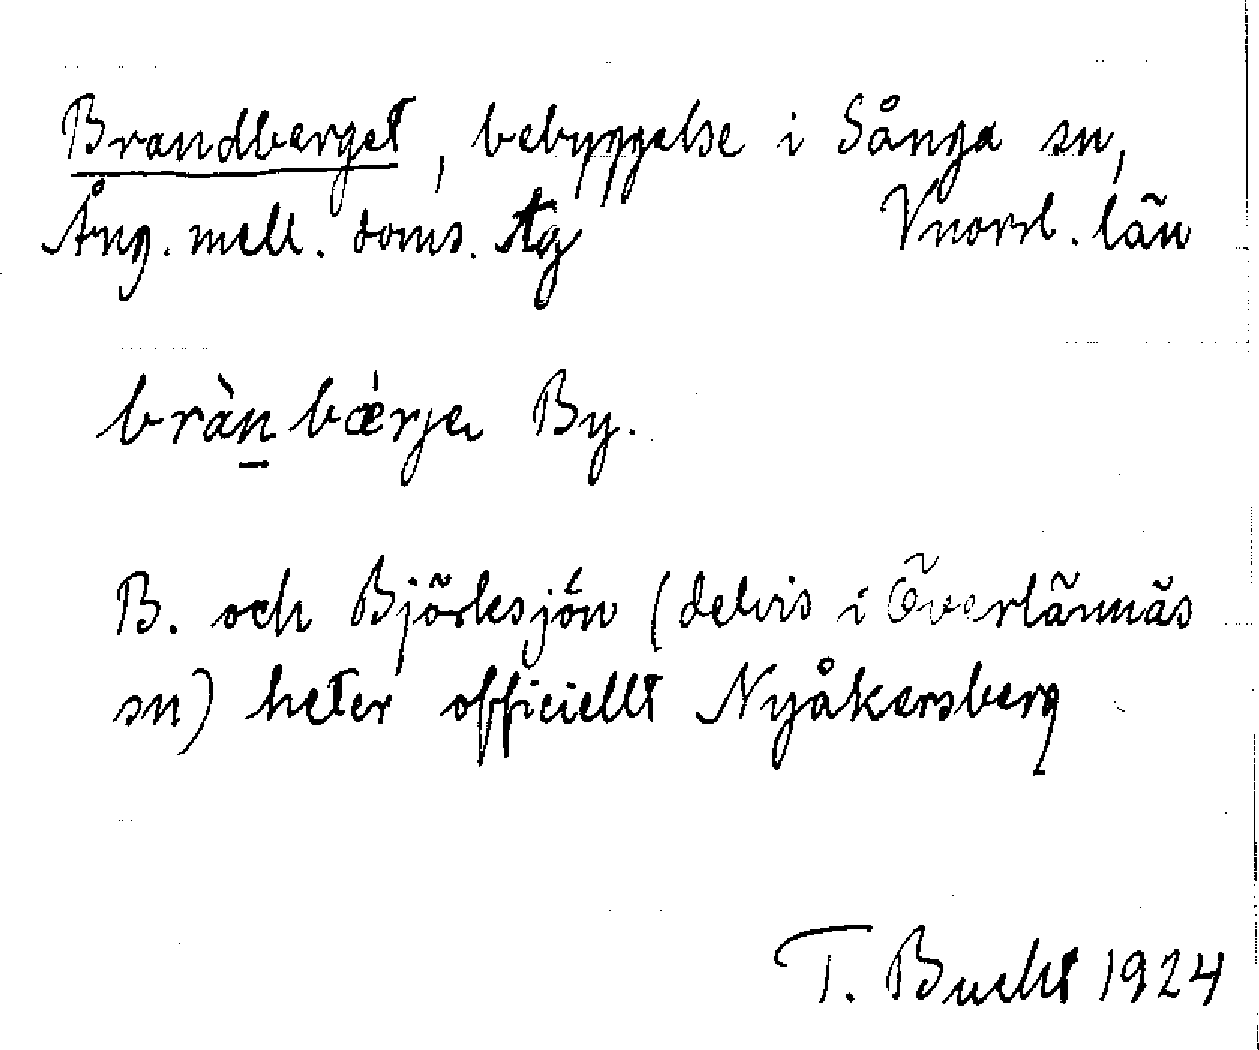 Brandberget, bebyggelse i Sånga sn,
Ång. mell. doms. tg Vnorrl. län
bràn bǽrjea By.
B. och Björksjön (delvis i Överlännäs
sn) heter officiellt Nyåkersberg
T. Bucht 1924